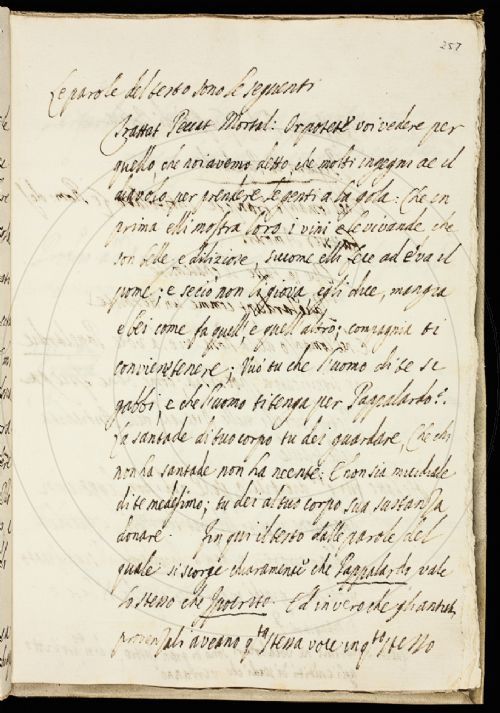 257
Le parole del testo sono le seguenti
Trattat Peccat Mortal: Or potete voi vedere per
quello che noi avemo detto, che molti ingegni ae il
diavolo per prendere le genti a la gola: Che in
prima elli mostra loro i vini e le vivande che
son belle e diliziose, sicome elli fece ad Eva il
pome; e se ciò non la gioia, egli dice, mangia
e bei come fa quelli e quell'altro; compagnia ti
convien tenere; Vuo' tu che l'uomo di te se
gabbi, e che l'uomo ti tenga per Pappalardo?.
La santade di tuo corpo tu dei guardare, Che chi
non ha santade non ha neente: E non sia micidiale
di te medesimo; tu dei al tuo corpo sua sustanza
donare. Fin qui il testo dalle parole del
quale si scorge chiaramente che Pappalardo vale
lo stesso che Ipocrito. Ed in vero che gli antichi
provenzali aveano q.ta stessa voce in q.to stesso